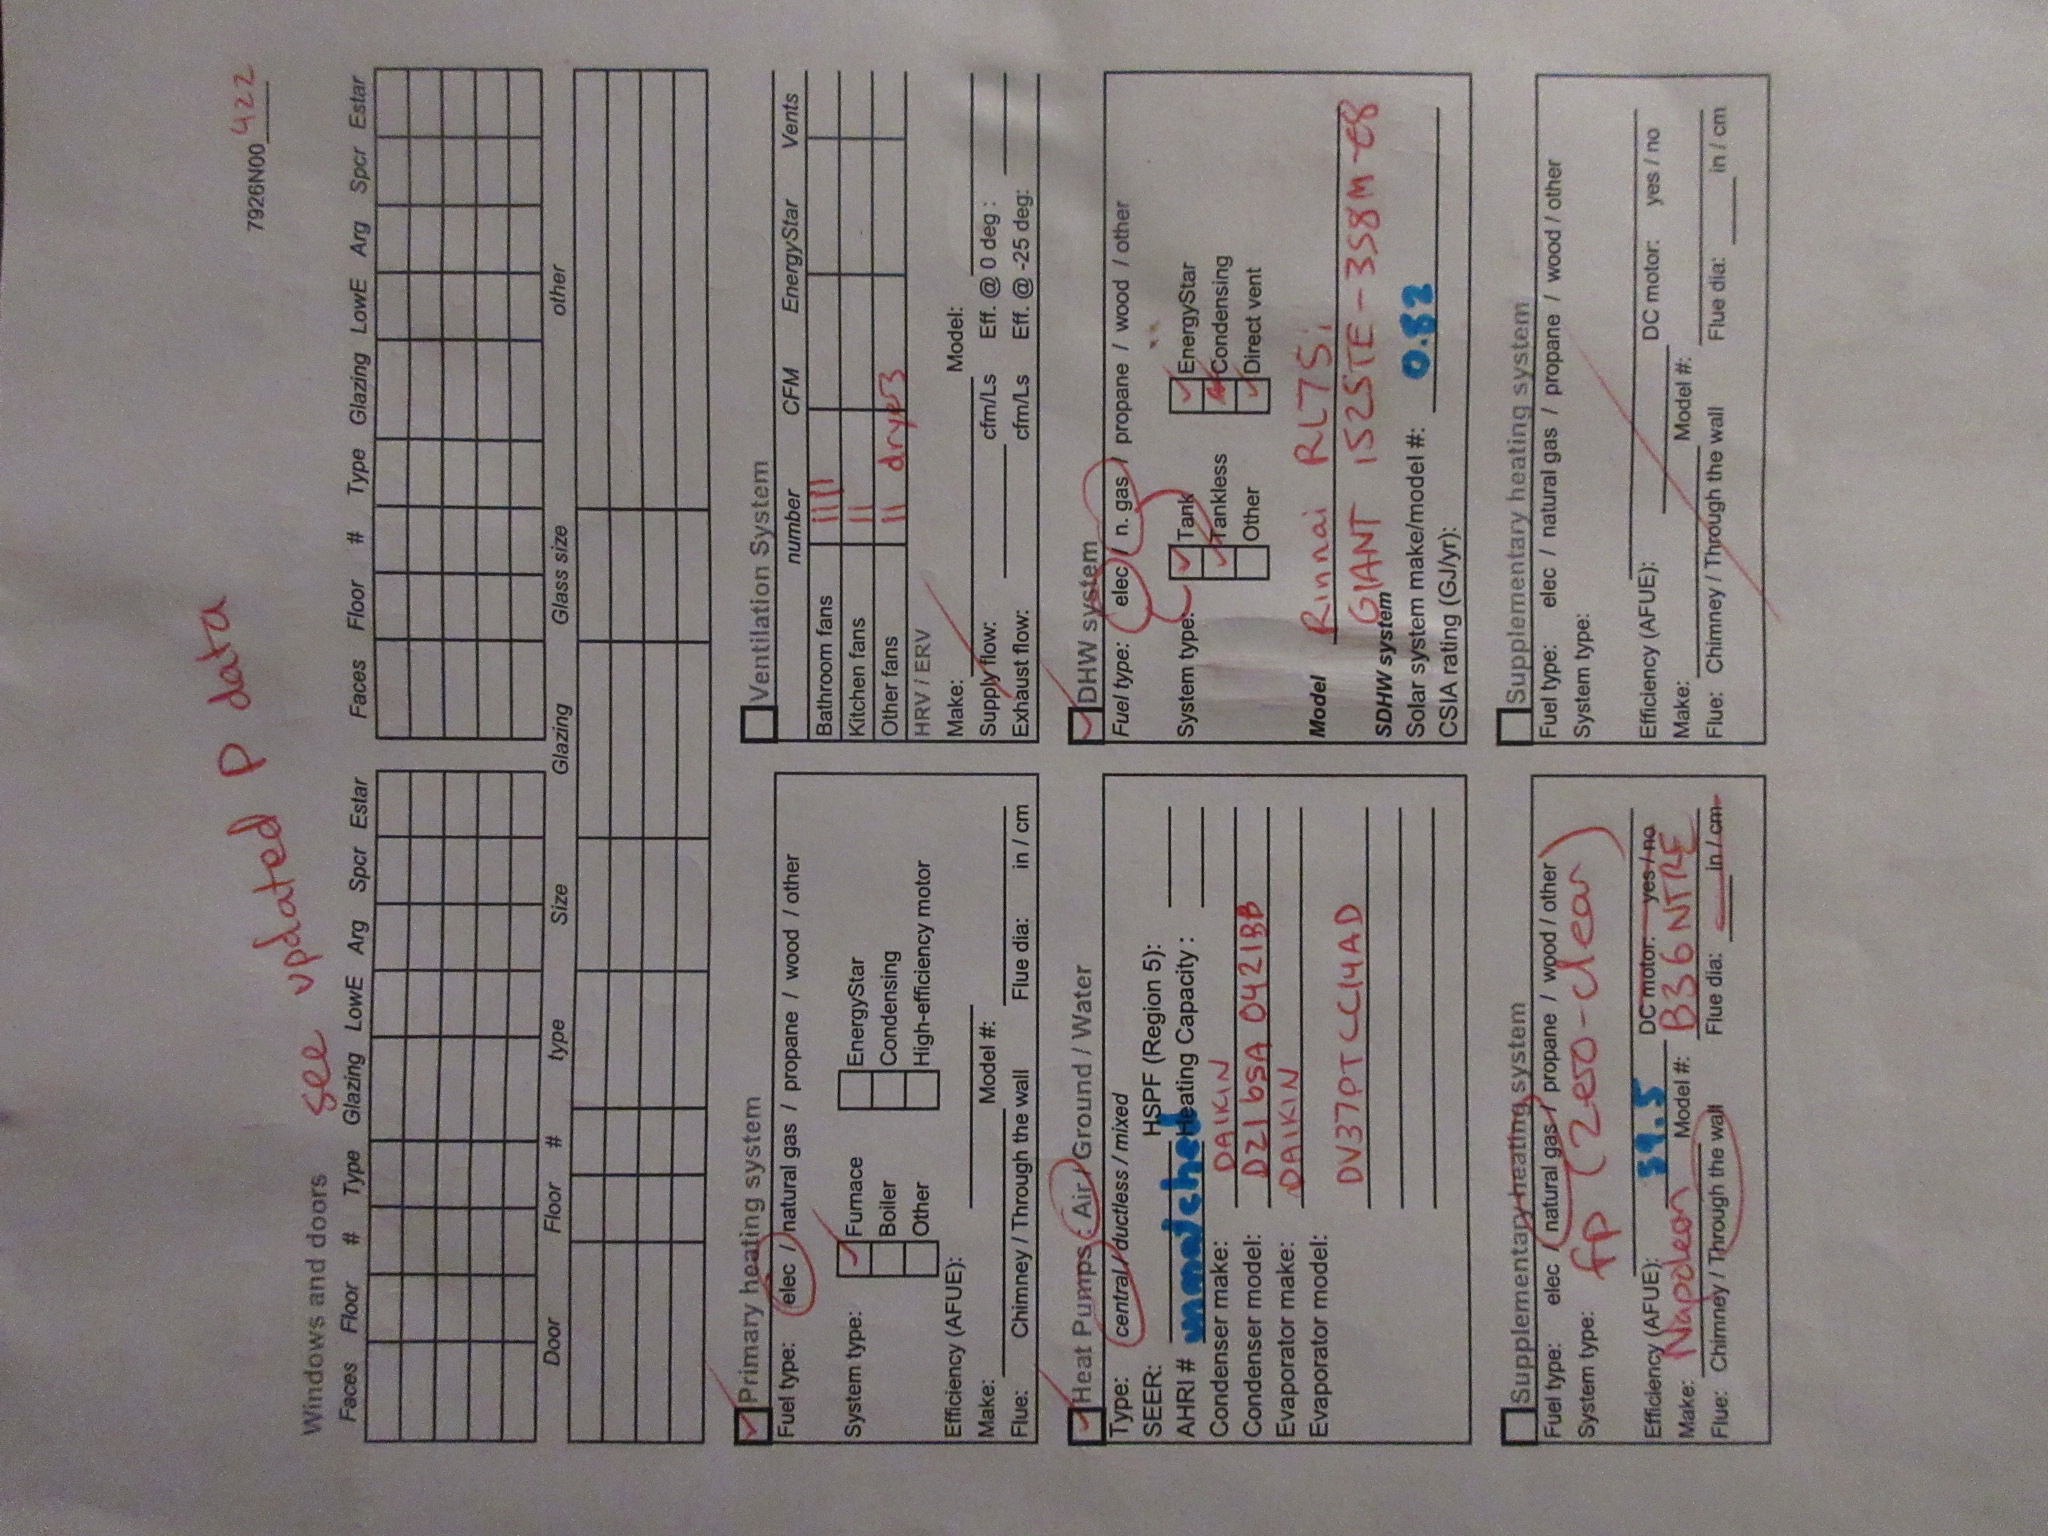 7926N00 422
see updated P data
Windows and doors
Faces Floor # Type Glazing LowE Arg Spcr Estar
Faces Floor # Type Glazing LowE Arg Spcr Estar
Door Floor # type Size Glazing Glass size other
Primary heating system
Fuel type: elec / natural gas / propane / wood / other
System type: Furnace EnergyStar
Boiler Condensing
Other High-efficiency motor
Efficiency (AFUE):
Make: Model #:
Flue: Chimney / Through the wall Flue dia: in / cm
Ventilation System
number CFM EnergyStar Vents
Bathroom fans 1111
Kitchen fans 11
Other fans 11 dryers
HRV / ERV
Make: Model:
Supply flow: cfm/Ls Eff. @ 0 deg :
Exhaust flow: cfm/Ls Eff. @ -25 deg:
Heat Pumps: Air / Ground / Water
Type: central / ductless / mixed
SEER: HSPF (Region 5):
AHRI # unmatched Heating Capacity :
Condenser make: DAIKIN
Condenser model: DZ16SA 0421BB
Evaporator make: DAIKIN
Evaporator model: DV37PTCC14AD
DHW system
Fuel type: elec / n. gas / propane / wood / other
System type: Tank EnergyStar
Tankless Condensing
Other Direct vent
Model Rinnai RL75i
GIANT 152STE-3S8M-E8
SDHW system
Solar system make/model #: 0.82
CSIA rating (GJ/yr):
Supplementary heating system
Fuel type: elec / natural gas / propane / wood / other
System type: fp (zero-clear)
Efficiency (AFUE): 59.5 DC motor: yes / no
Make: Napoleon Model #: B36NTRE
Flue: Chimney / Through the wall Flue dia: in / cm
Supplementary heating system
Fuel type: elec / natural gas / propane / wood / other
System type:
Efficiency (AFUE): DC motor: yes / no
Make: Model #:
Flue: Chimney / Through the wall Flue dia: in / cm